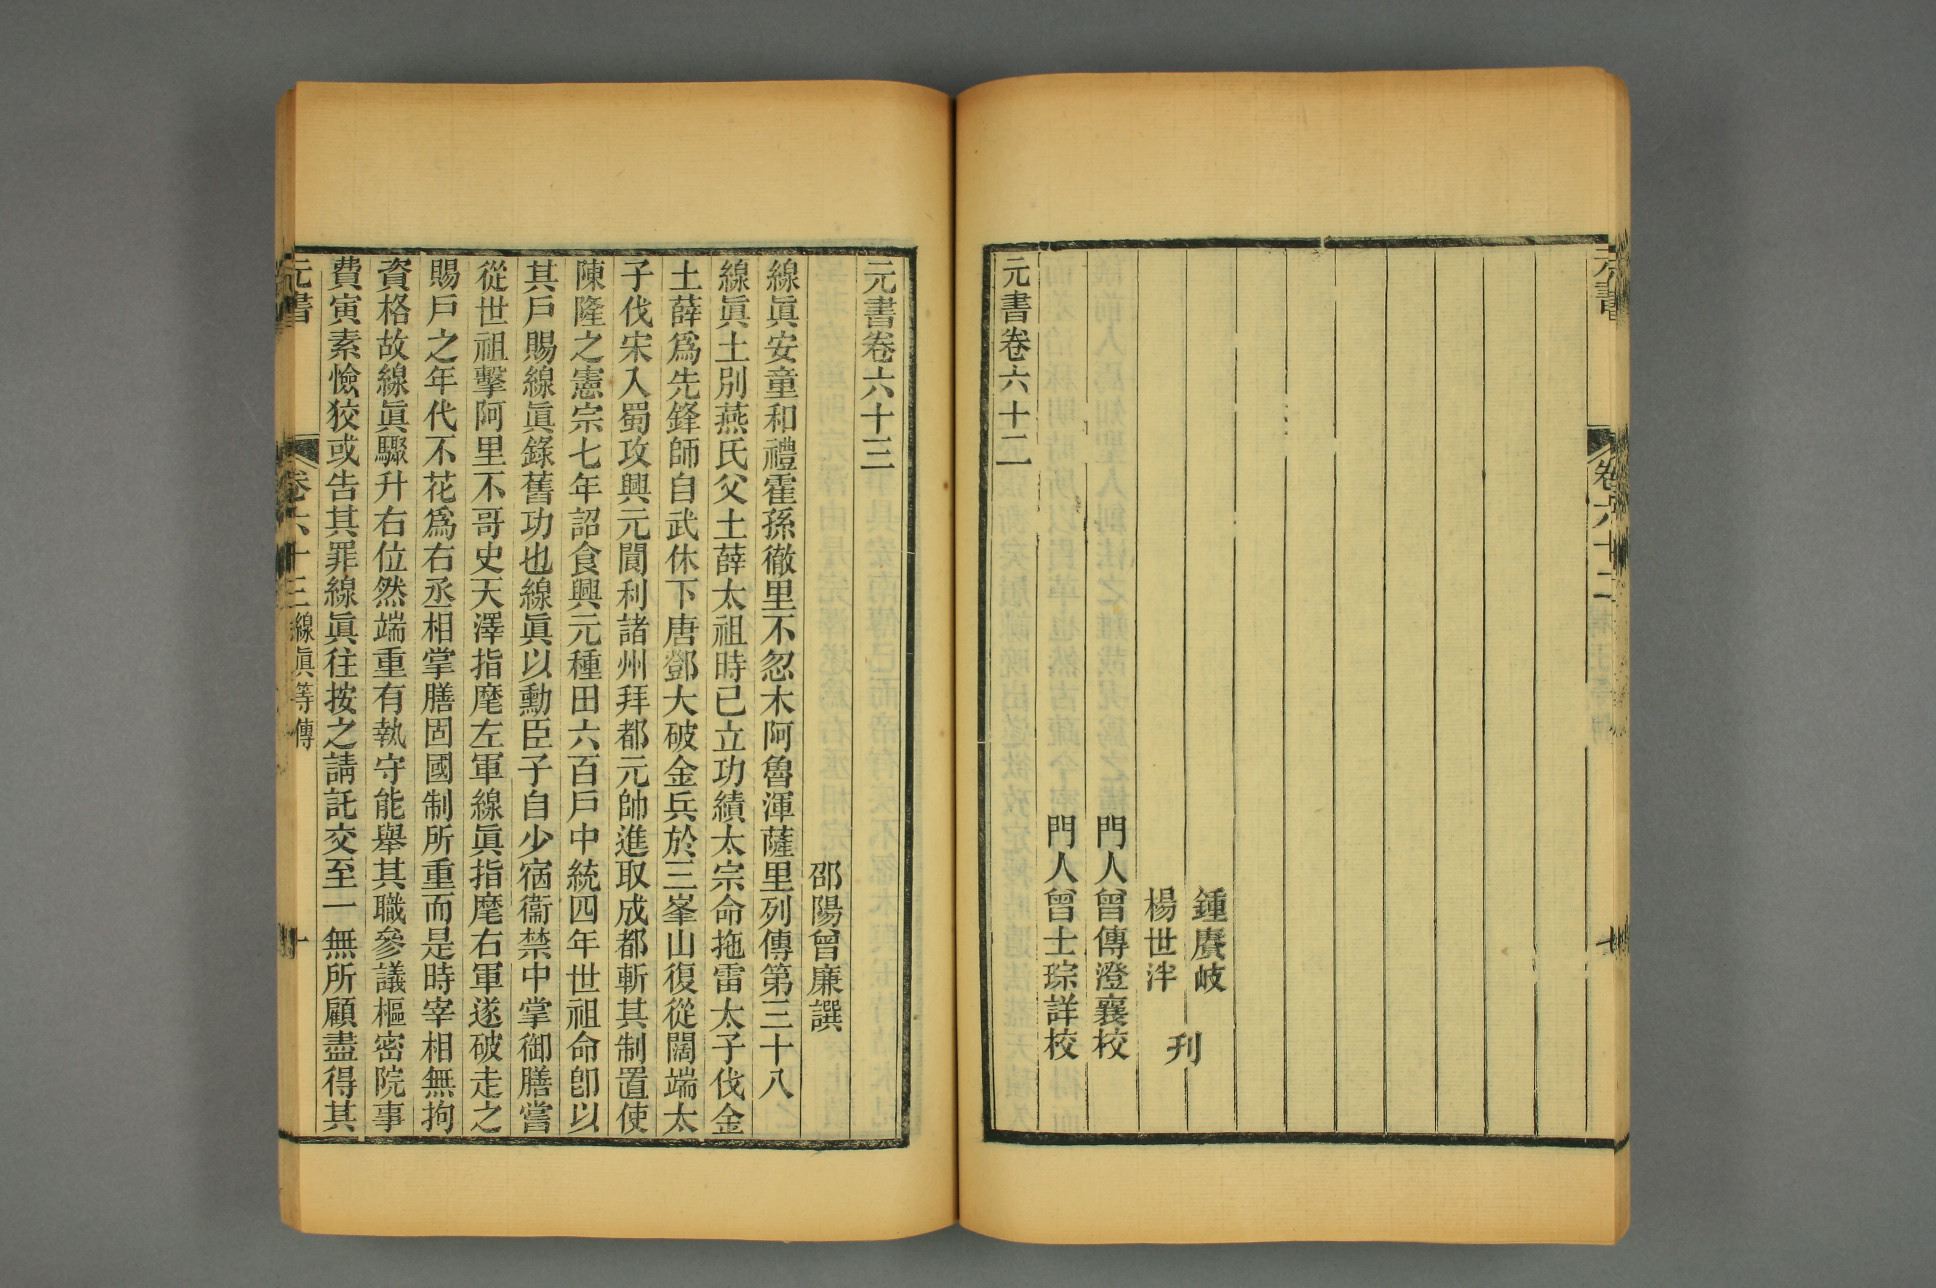 元書
卷六十二
鍾賡岐
楊世泮
刊
門人曾傳澄襄校
門人曾士琮詳校
元書卷六十二
元書卷六十三
邵陽曾廉譔
線眞安童和禮霍孫徹里不忽木阿魯渾薩里列傳第三十八
線眞土別燕氏父土薛太祖時已立功績太宗命拖雷太子伐金
土薛爲先鋒師自武休下唐鄧大破金兵於三峯山復從闊端太
子伐宋入蜀攻興元閬利諸州拜都元帥進取成都斬其制置使
陳隆之憲宗七年詔食興元種田六百戶中統四年世祖命卽以
其戶賜線眞錄舊功也線眞以勳臣子自少宿衞禁中掌御膳嘗
從世祖擊阿里不哥史天澤指麾左軍線眞指麾右軍遂破走之
賜戶之年代不花爲右丞相掌膳固國制所重而是時宰相無拘
資格故線眞驟升右位然端重有執守能舉其職參議樞密院事
費寅素憸狡或告其罪線眞往按之請託交至一無所顧盡得其
元書
卷六十三
線眞等傳
一